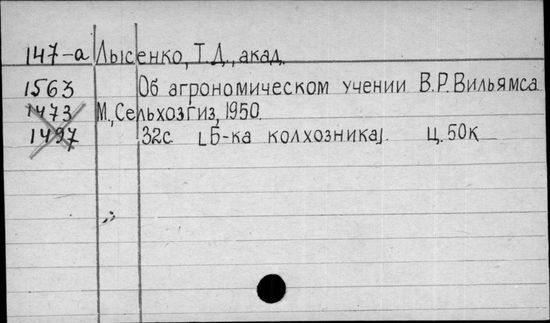 147-а Лысенко, Т.Д., акад.
1563 Об агрономическом учении В.Р.Вильямса
1473 М., Сельхозгиз, 1950.
1497 32с. [Б-ка колхозника]. Ц.50к